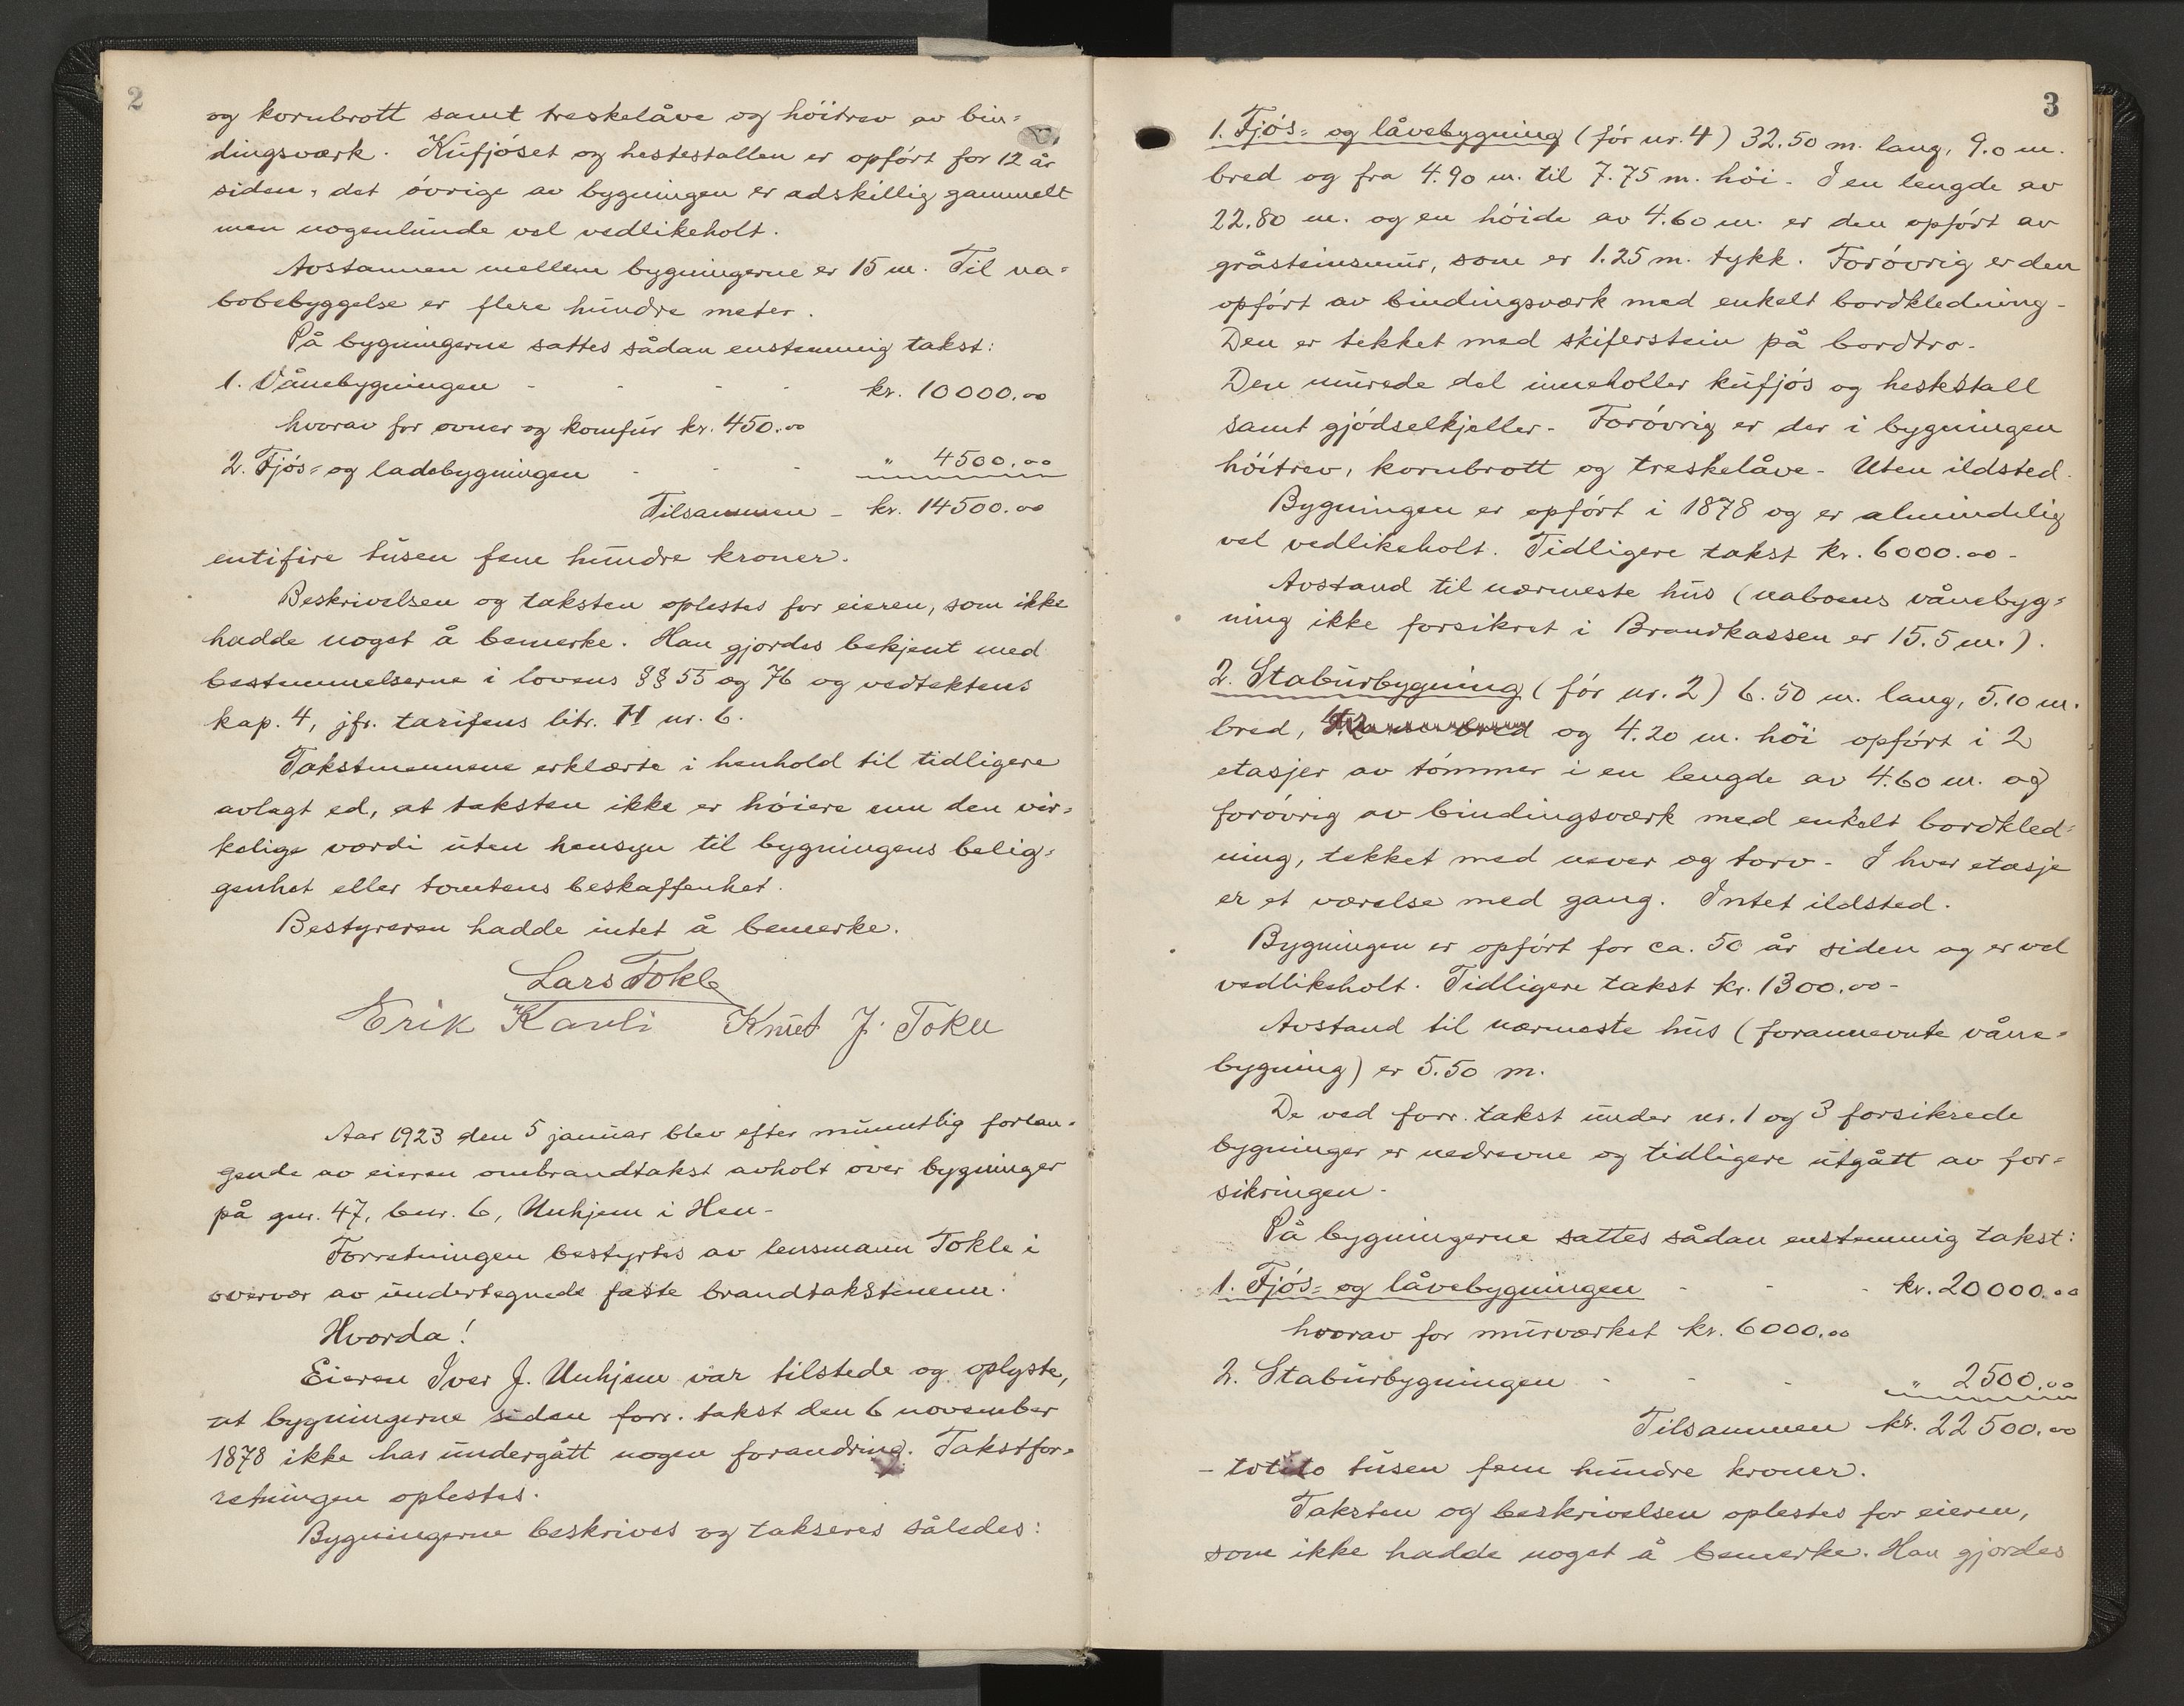 2
og kornbrott samt treskelåve og höitrev av bin=
dingsværk. Kufjöset og hestestallen er opfört for 12 år
siden, det övrige av bygningen er adskillig gammelt
men nogenlunde vel vedlikeholt.
Avstannen mellem bygningerne er 15 m. Til na=
bobebyggelse er flere hundre meter.
På bygningerne sattes sådan enstemmig takst:
1. Vånebygningen - - - - kr. 10000.00
hvorav for ovner og komfur kr. 450.00
2. Fjös= og ladebygningen - - - " 4500.00
Tilsammen - kr. 14500.00
entifire tusen fem hundre kroner.
Beskrivelsen og taksten oplestes for eieren, som ikke
hadde noget å bemerke. Han gjordes bekjent med
bestemmelserne i lovens §§ 55 og 76 og vedtektens
kap. 4, jfr. tarifens litr. H nr. 6.
Takstmennene erklærte i henhold til tidligere
avlagt ed, at taksten ikke er höiere enn den vir=
kelige værdi uten hensyn til bygningens belig=
genhet eller tomtens beskaffenhet.
Bestyreren hadde intet å bemerke.
Lars Tokle
Erik Kavli Knut J. Tokle
Aar 1923 den 5 januar blev efter munntlig forlan=
gende av eieren ombrandtakst avholt over bygninger
på gnr. 47, bnr. 6, Unhjem i Hen-
Forretningen bestyrtes av lensmann Tokle i
overvær av undertegnede faste brandtakstmenn.
Hvorda!
Eieren Iver J. Unhjem var tilstede og oplyste,
at bygningerne siden forr. takst den 6 november
1878 ikke har undergått nogen forandring. Takstfor=
retningen oplestes.
Bygningerne beskrives og takseres således:
3
1. Fjös= og låvebygning (för nr. 4) 32.50 m. lang, 9.0 m.
bred og fra 4.90 m. til 7.75 m. höi. I en lengde av
22.80 m. og en höide av 4.60 m. er den opfört av
gråsteinsmur, som er 1.25 m. tykk. Forövrig er den
opfört av bindingsværk med enkelt bordkledning-
Den er tekket med skiferstein på bordtro-
Den murede del inneholler kufjös og hestestall
samt gjödselkjeller- Forövrig er der i bygningen
höitrev, kornbrott og treskelåve- Uten ildsted.
Bygningen er opfört i 1878 og er almindelig
vel vedlikeholt. Tidligere takst kr. 6000.00-
Avstand til nærmeste hus (naboens vånebyg=
ning ikke forsikret i Brandkassen er 15.5 m.).
2. Stabursbygning (för nr. 2) 6.50 m. lang, 5.10 m.
bred, og 4.20 m. höi opfört i 2
etasjer av tömmer i en lengde av 4.60 m. og
forövrig av bindingsværk med enkelt bordkled=
ning, tekket med never og torv- I hver etasje
er et værelse med gang. Intet ildsted.
Bygningen er opfört for ca. 50 år siden og er vel
vedlikeholt. Tidligere takst kr. 1300.00-
Avstand til nærmeste hus (forannevnte våne=
bygning) er 5.50 m.
De ved forr. takst under nr. 1 og 3 forsikrede
bygninger er nedrevne og tidligere utgått av for=
sikringen-
På bygningerne sattes sådan enstemmig takst:
1. Fjös= og låvebygningen - - - kr. 20000.00
hvorav for murværket kr. 6000.00
2. Stabursbygningen - - - " 2500.00
Tilsammen kr. 22500.00
- totito tusen fem hundre kroner.
Taksten og beskrivelsen oplestes for eieren,
som ikke hadde noget å bemerke. Han gjordes